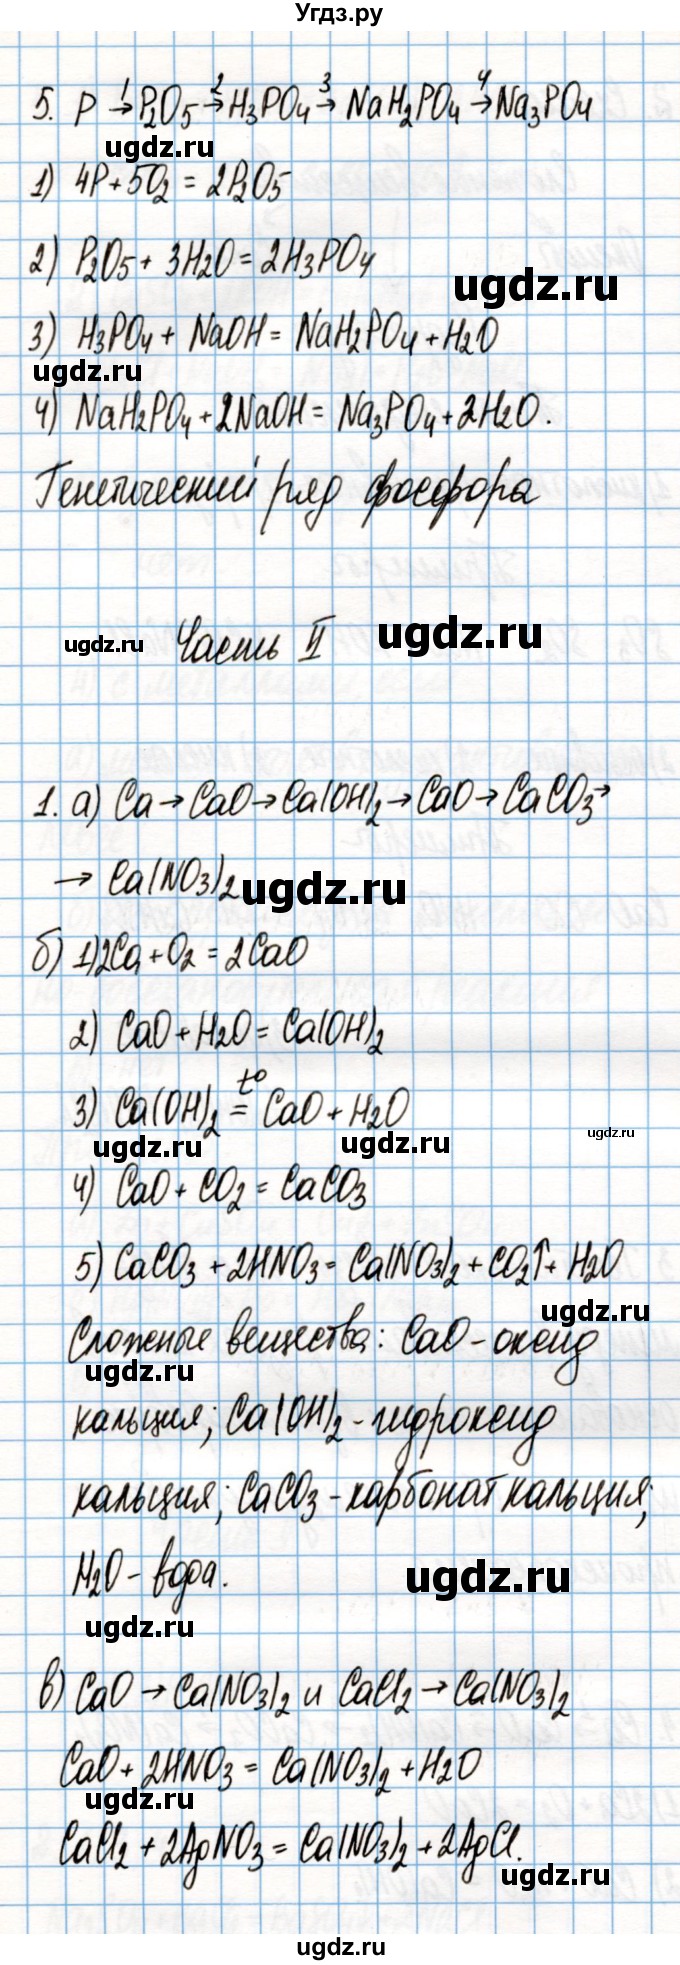 Угдз.ру
5. P →¹ P₂O₅ →² H₃PO₄ →³ NaH₂PO₄ →⁴ Na₃PO₄
ugdz.ru
1) 4P + 5O₂ = 2P₂O₅
2) P₂O₅ + 3H₂O = 2H₃PO₄
ugdz.ru
3) H₃PO₄ + NaOH = NaH₂PO₄ + H₂O
ugdz.ru
4) NaH₂PO₄ + 2NaOH = Na₃PO₄ + 2H₂O.
Генетический ряд фосфора
ugdz.ru Часть II ugdz.ru
1. а) Ca → CaO → Ca(OH)₂ → CaO → CaCO₃ →
→ Ca(NO₃)₂
ugdz.ru
б) 1) 2Ca + O₂ = 2CaO
2) CaO + H₂O = Ca(OH)₂
3) Ca(OH)₂ =ᵗ° CaO + H₂O
ugdz.ru
ugdz.ru ugdz.ru
4) CaO + CO₂ = CaCO₃
5) CaCO₃ + 2HNO₃ = Ca(NO₃)₂ + CO₂↑ + H₂O
ugdz.ru
Сложные вещества: CaO - оксид
ugdz.ru
кальция; Ca(OH)₂ - гидроксид
кальция; CaCO₃ - карбонат кальция;
H₂O - вода.
ugdz.ru
ugdz.ru
в) CaO → Ca(NO₃)₂ и CaCl₂ → Ca(NO₃)₂
CaO + 2HNO₃ = Ca(NO₃)₂ + H₂O
ugdz.ru
CaCl₂ + 2AgNO₃ = Ca(NO₃)₂ + 2AgCl.
ugdz.ru
ugdz.ru